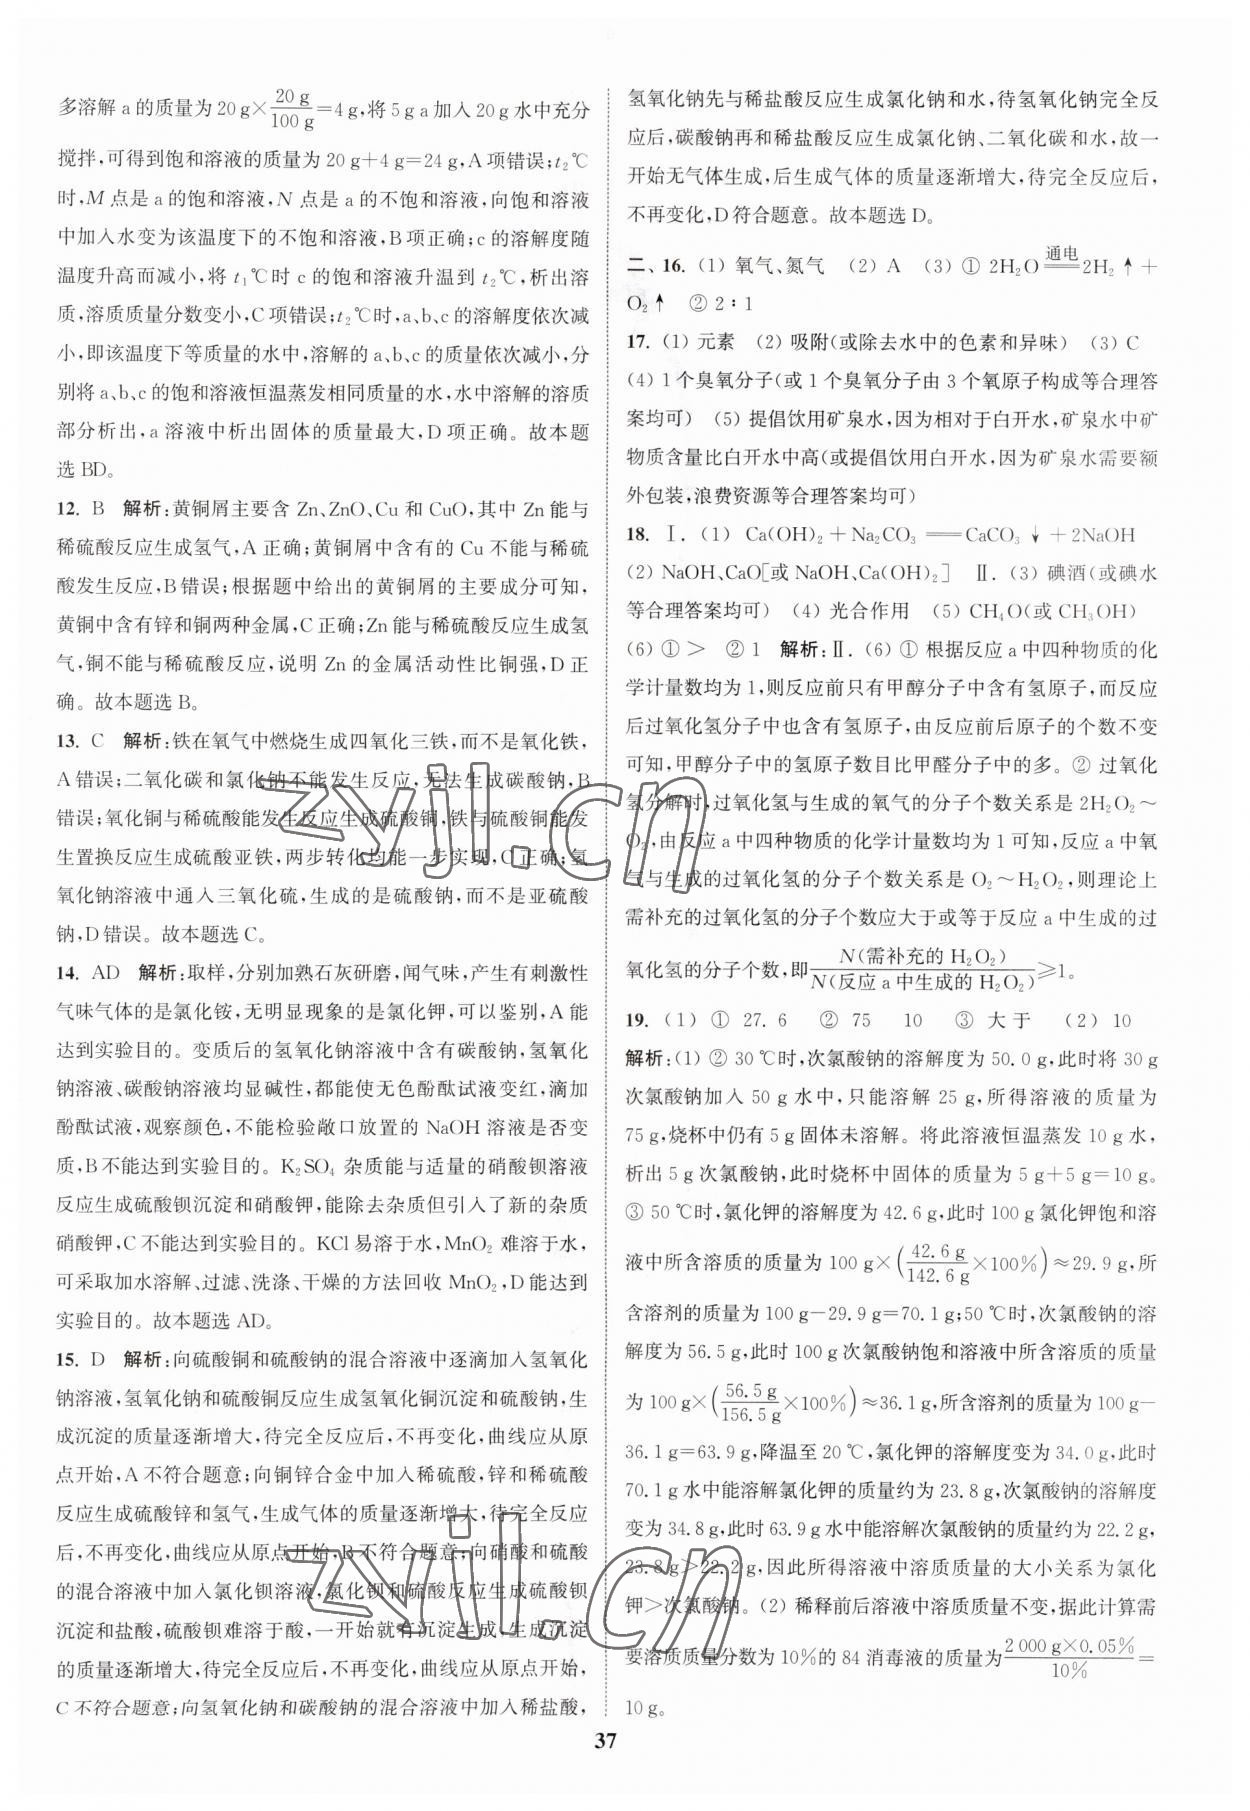 多溶解 a 的质量为 20 g×20 g/100 g=4 g,将 5 g a 加入 20 g 水中充分
搅拌,可得到饱和溶液的质量为 20 g+4 g=24 g,A 项错误;t₂℃
时,M 点是 a 的饱和溶液,N 点是 a 的不饱和溶液,向饱和溶液
中加入水变为该温度下的不饱和溶液,B 项正确;c 的溶解度随
温度升高而减小,将 t₁℃时 c 的饱和溶液升温到 t₂℃,析出溶
质,溶质质量分数变小,C 项错误;t₂℃时,a、b、c 的溶解度依次减
小,即该温度下等质量的水中,溶解的 a、b、c 的质量依次减小,分
别将 a、b、c 的饱和溶液恒温蒸发相同质量的水,水中溶解的溶质
部分析出,a 溶液中析出固体的质量最大,D 项正确。故本题
选 BD。
12. B 解析:黄铜屑主要含 Zn、ZnO、Cu 和 CuO,其中 Zn 能与
稀硫酸反应生成氢气,A 正确;黄铜屑中含有的 Cu 不能与稀硫
酸发生反应,B 错误;根据题中给出的黄铜屑的主要成分可知,
黄铜中含有锌和铜两种金属,C 正确;Zn 能与稀硫酸反应生成氢
气,铜不能与稀硫酸反应,说明 Zn 的金属活动性比铜强,D 正
确。故本题选 B。
13. C 解析:铁在氧气中燃烧生成四氧化三铁,而不是氧化铁,
A 错误;二氧化碳和氯化钠不能发生反应,无法生成碳酸钠,B
错误;氧化铜与稀硫酸能发生反应生成硫酸铜,铁与硫酸铜能发
生置换反应生成硫酸亚铁,两步转化均能一步实现,C 正确;氢
氧化钠溶液中通入三氧化硫,生成的是硫酸钠,而不是亚硫酸
钠,D 错误。故本题选 C。
14. AD 解析:取样,分别加熟石灰研磨,闻气味,产生有刺激性
气味气体的是氯化铵,无明显现象的是氯化钾,可以鉴别,A 能
达到实验目的。变质后的氢氧化钠溶液中含有碳酸钠,氢氧化
钠溶液、碳酸钠溶液均显碱性,都能使无色酚酞试液变红,滴加
酚酞试液,观察颜色,不能检验敞口放置的 NaOH 溶液是否变
质,B 不能达到实验目的。K₂SO₄ 杂质能与适量的硝酸钡溶液
反应生成硫酸钡沉淀和硝酸钾,能除去杂质但引入了新的杂质
硝酸钾,C 不能达到实验目的。KCl 易溶于水,MnO₂ 难溶于水,
可采取加水溶解、过滤、洗涤、干燥的方法回收 MnO₂,D 能达到
实验目的。故本题选 AD。
15. D 解析:向硫酸铜和硫酸钠的混合溶液中逐滴加入氢氧化
钠溶液,氢氧化钠和硫酸铜反应生成氢氧化铜沉淀和硫酸钠,生
成沉淀的质量逐渐增大,待完全反应后,不再变化,曲线应从原
点开始,A 不符合题意;向铜锌合金中加入稀硫酸,锌和稀硫酸
反应生成硫酸锌和氢气,生成气体的质量逐渐增大,待完全反应
后,不再变化,曲线应从原点开始,B 不符合题意;向硝酸和硫酸
的混合溶液中加入氯化钡溶液,氯化钡和硫酸反应生成硫酸钡
沉淀和盐酸,硫酸钡难溶于酸,一开始就有沉淀生成,生成沉淀
的质量逐渐增大,待完全反应后,不再变化,曲线应从原点开始,
C 不符合题意;向氢氧化钠和碳酸钠的混合溶液中加入稀盐酸,
氢氧化钠先与稀盐酸反应生成氯化钠和水,待氢氧化钠完全反
应后,碳酸钠再和稀盐酸反应生成氯化钠、二氧化碳和水,故一
开始无气体生成,后生成气体的质量逐渐增大,待完全反应后,
不再变化,D 符合题意。故本题选 D。
二、16. (1) 氧气、氮气 (2) A (3) ① 2H₂O 通电═ 2H₂↑+
O₂↑ ② 2∶1
17. (1) 元素 (2) 吸附(或除去水中的色素和异味) (3) C
(4) 1 个臭氧分子(或 1 个臭氧分子由 3 个氧原子构成等合理答
案均可) (5) 提倡饮用矿泉水,因为相对于白开水,矿泉水中矿
物质含量比白开水中高(或提倡饮用白开水,因为矿泉水需要额
外包装,浪费资源等合理答案均可)
18. Ⅰ. (1) Ca(OH)₂+Na₂CO₃══CaCO₃↓+2NaOH
(2) NaOH、CaO[或 NaOH、Ca(OH)₂] Ⅱ. (3) 碘酒(或碘水
等合理答案均可) (4) 光合作用 (5) CH₄O(或 CH₃OH)
(6) ① > ② 1 解析:Ⅱ. (6) ① 根据反应 a 中四种物质的化
学计量数均为 1,则反应前只有甲醇分子中含有氢原子,而反应
后过氧化氢分子中也含有氢原子,由反应前后原子的个数不变
可知,甲醇分子中的氢原子数目比甲醛分子中的多。② 过氧化
氢分解时,过氧化氢与生成的氧气的分子个数关系是 2H₂O₂～
O₂,由反应 a 中四种物质的化学计量数均为 1 可知,反应 a 中氧
气与生成的过氧化氢的分子个数关系是 O₂～H₂O₂,则理论上
需补充的过氧化氢的分子个数应大于或等于反应 a 中生成的过
氧化氢的分子个数,即N(需补充的 H₂O₂)/N(反应 a 中生成的 H₂O₂)≥1。
19. (1) ① 27. 6 ② 75 10 ③ 大于 (2) 10
解析:(1) ② 30 ℃时,次氯酸钠的溶解度为 50. 0 g,此时将 30 g
次氯酸钠加入 50 g 水中,只能溶解 25 g,所得溶液的质量为
75 g,烧杯中仍有 5 g 固体未溶解。将此溶液恒温蒸发 10 g 水,
析出 5 g 次氯酸钠,此时烧杯中固体的质量为 5 g+5 g=10 g。
③ 50 ℃时,氯化钾的溶解度为 42. 6 g,此时 100 g 氯化钾饱和溶
液中所含溶质的质量为 100 g×(42. 6 g/142. 6 g×100%)≈29. 9 g,所
含溶剂的质量为 100 g−29. 9 g=70. 1 g;50 ℃时,次氯酸钠的溶
解度为 56. 5 g,此时 100 g 次氯酸钠饱和溶液中所含溶质的质量
为 100 g×(56. 5 g/156. 5 g×100%)≈36. 1 g,所含溶剂的质量为 100 g−
36. 1 g=63. 9 g,降温至 20 ℃,氯化钾的溶解度变为 34. 0 g,此时
70. 1 g 水中能溶解氯化钾的质量约为 23. 8 g,次氯酸钠的溶解度
变为 34. 8 g,此时 63. 9 g 水中能溶解次氯酸钠的质量约为 22. 2 g,
23. 8 g>22. 2 g,因此所得溶液中溶质质量的大小关系为氯化
钾>次氯酸钠。(2) 稀释前后溶液中溶质质量不变,据此计算需
要溶质质量分数为 10%的 84 消毒液的质量为2 000 g×0. 05%/10%=
10 g。
37
zyjl.cn
zyjl.cn